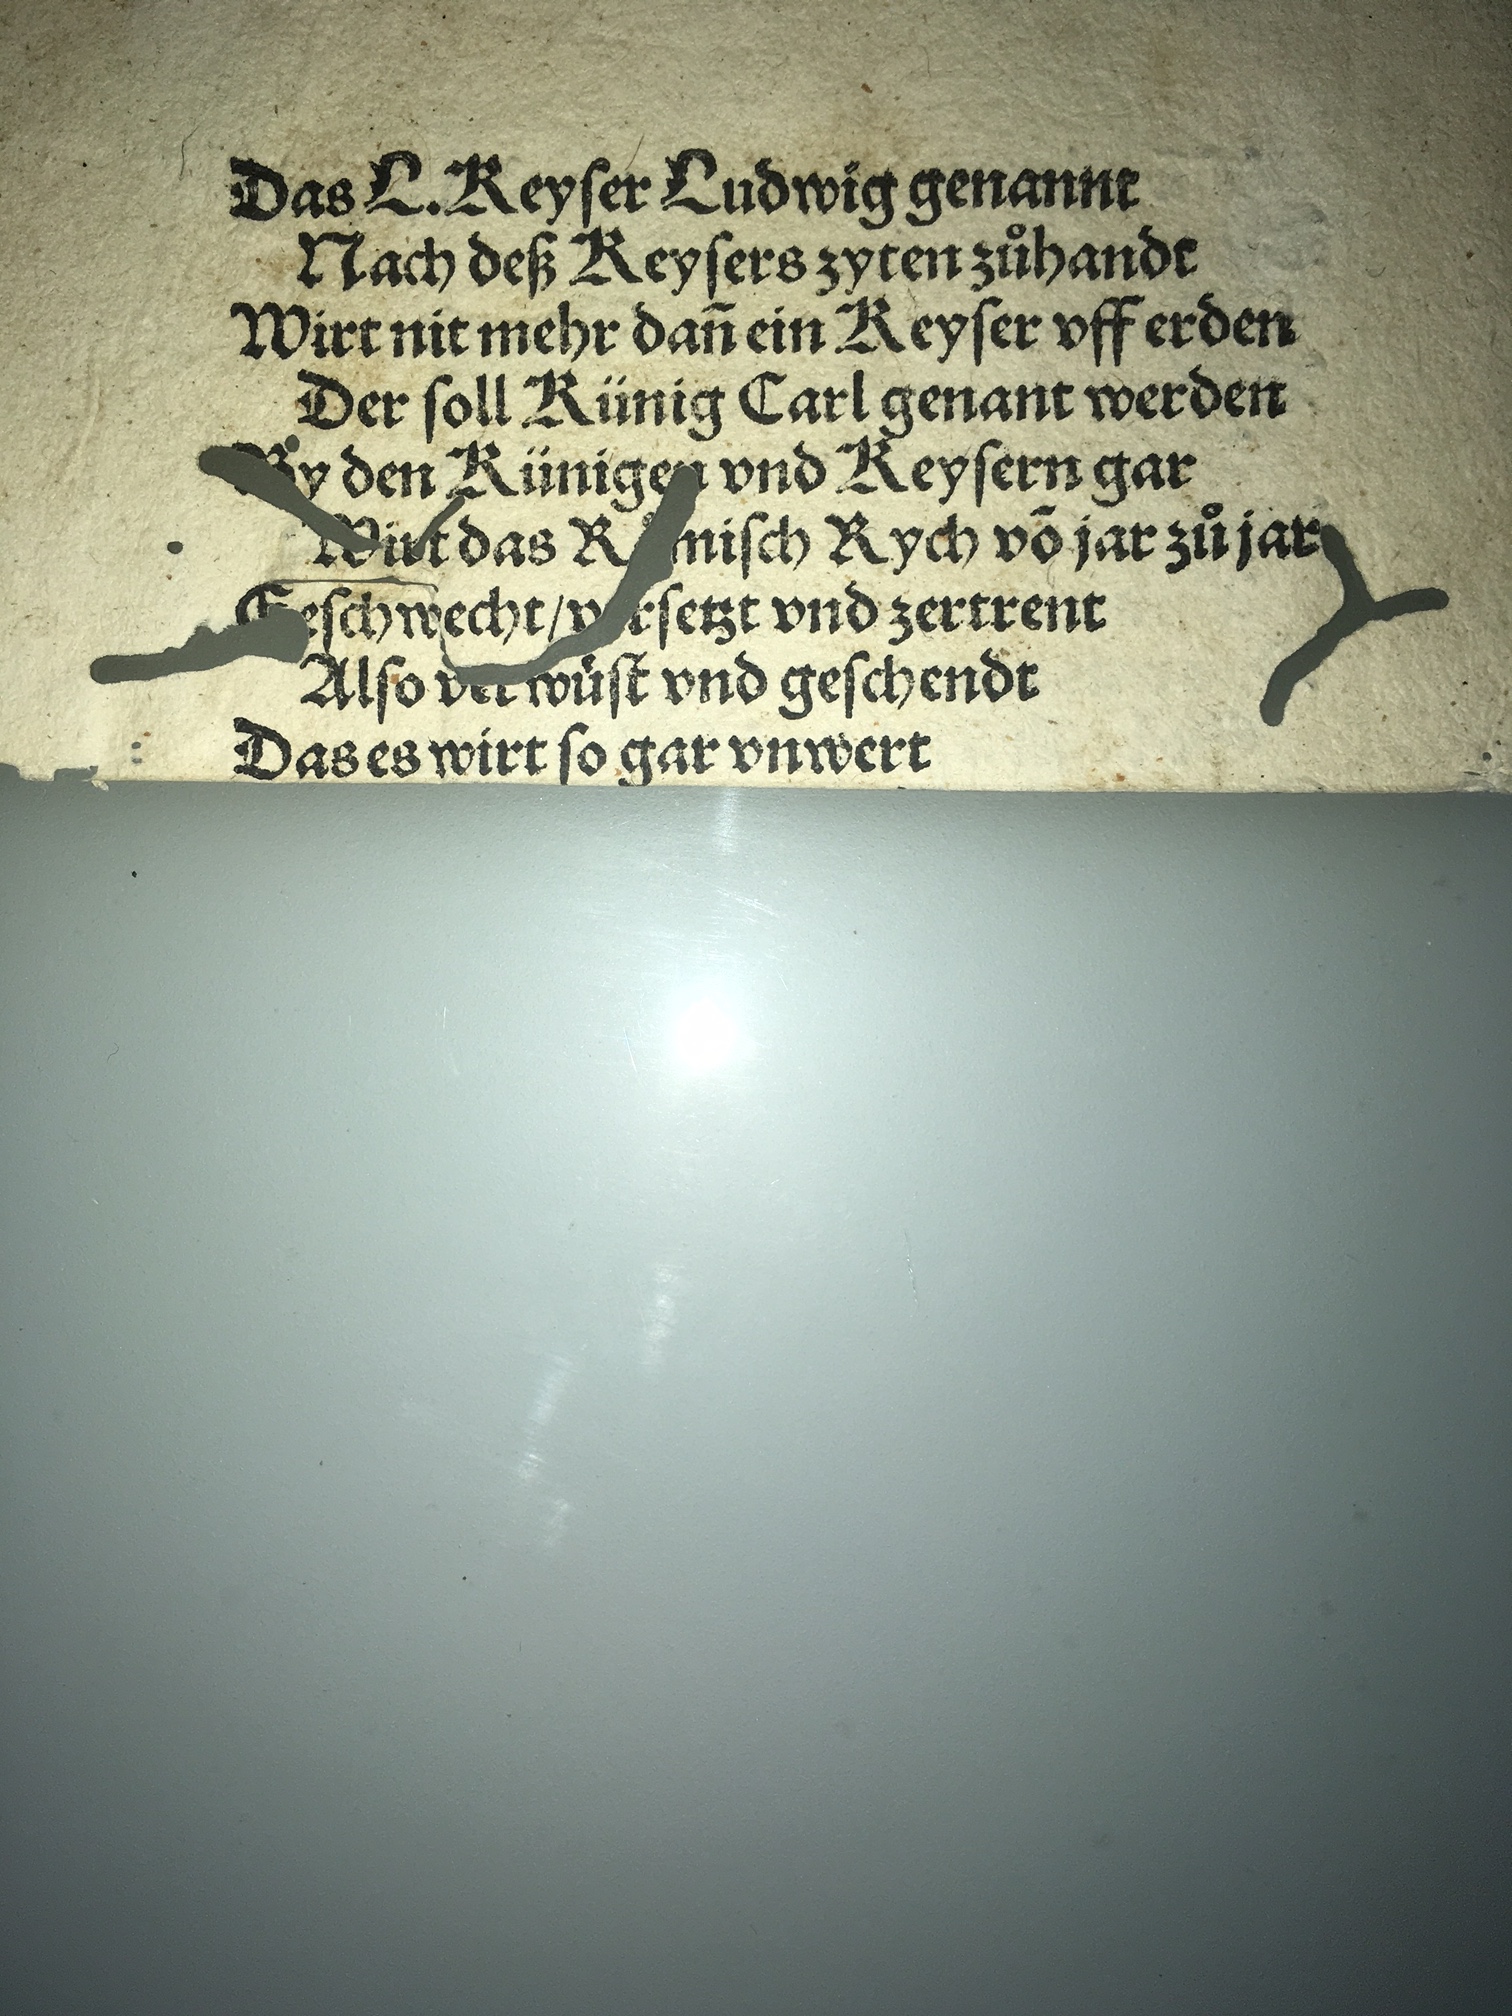 Das L. Keyser Ludwig genannt
Nach deß Keysers zyten zůhandt
Wirt nit mehr dañ ein Keyser vff erden
Der soll Künig Carl genant werden
By den Künigen vnd Keysern gar
Wirt das Rych võ jar zů jar
Geschwecht/ vnd zertrent
Also vnd geschendt
Das es wirt so gar vnwert